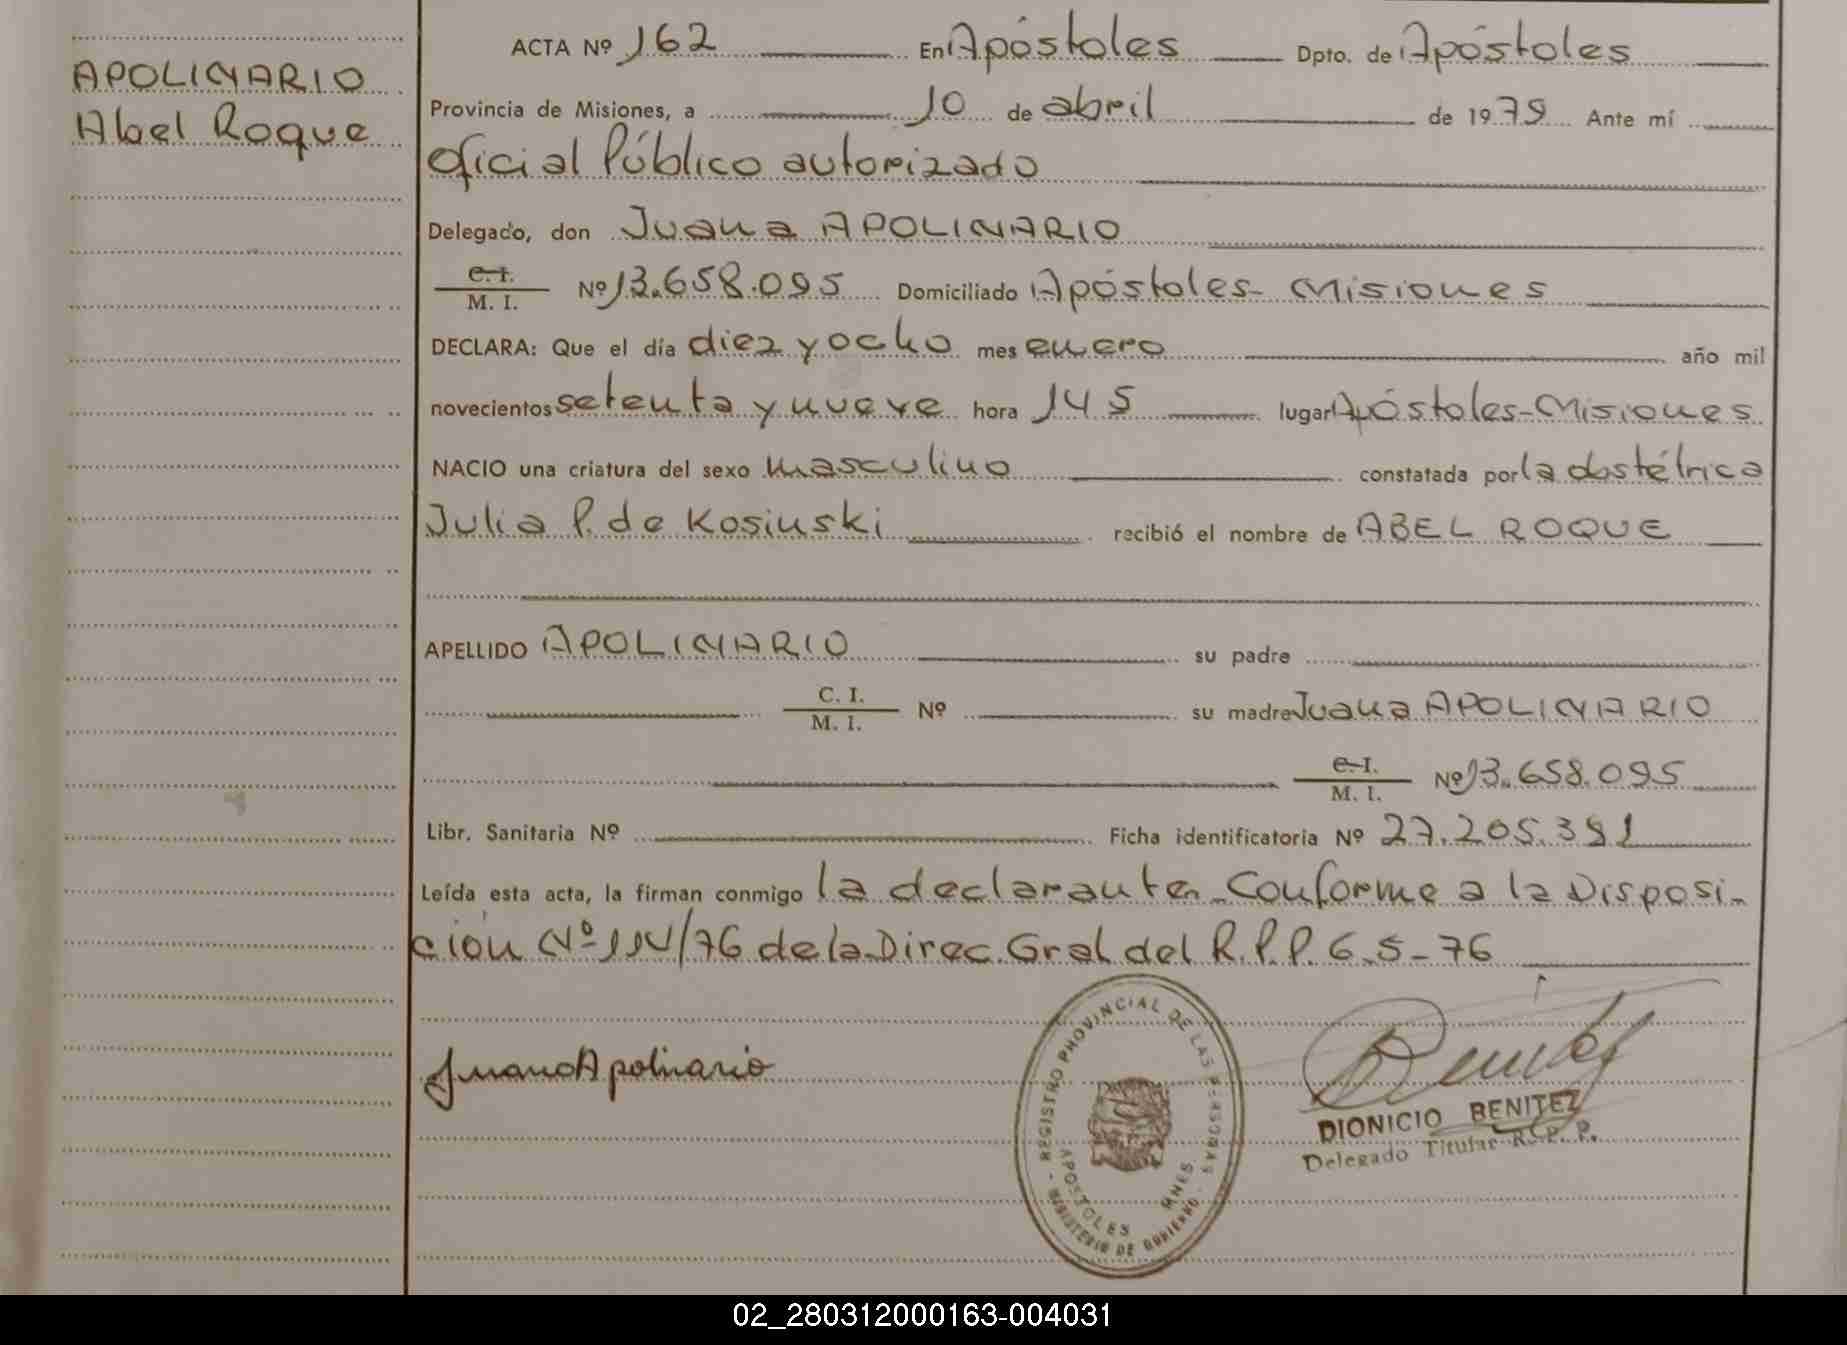 APOLINARIO
Abel Roque
ACTA Nº 162 En Apóstoles Dpto. de Apóstoles
Provincia de Misiones, a 10 de abril de 1979 Ante mí
oficial Público autorizado
Delegado, don Juana APOLINARIO
C. I.
M. I. Nº 13.658.095 Domiciliado Apóstoles - Misiones
DECLARA: Que el día diez y ocho mes enero año mil
novecientos setenta y nueve hora 145 lugar Apóstoles - Misiones
NACIO una criatura del sexo masculino constatada por la obstétrica
Julia P. de Kosinski recibió el nombre de ABEL ROQUE
APELLIDO APOLINARIO su padre
C. I.
M. I. Nº su madre Juana APOLINARIO
C. I.
M. I. Nº 13.658.095
Libr. Sanitaria Nº Ficha identificatoria Nº 27.205.391
Leída esta acta, la firman conmigo la declarante. Conforme a la Disposi-
ción Nº 114/76 de la Direc. Gral del R.P.P. 6-5-76
Juana Apolinario
REGISTRO PROVINCIAL DE LAS PERSONAS
APOSTOLES MNES.
MINISTERIO DE GOBIERNO
Benitez
DIONICIO BENITEZ
Delegado Titular R. P. P.
02_280312000163-004031